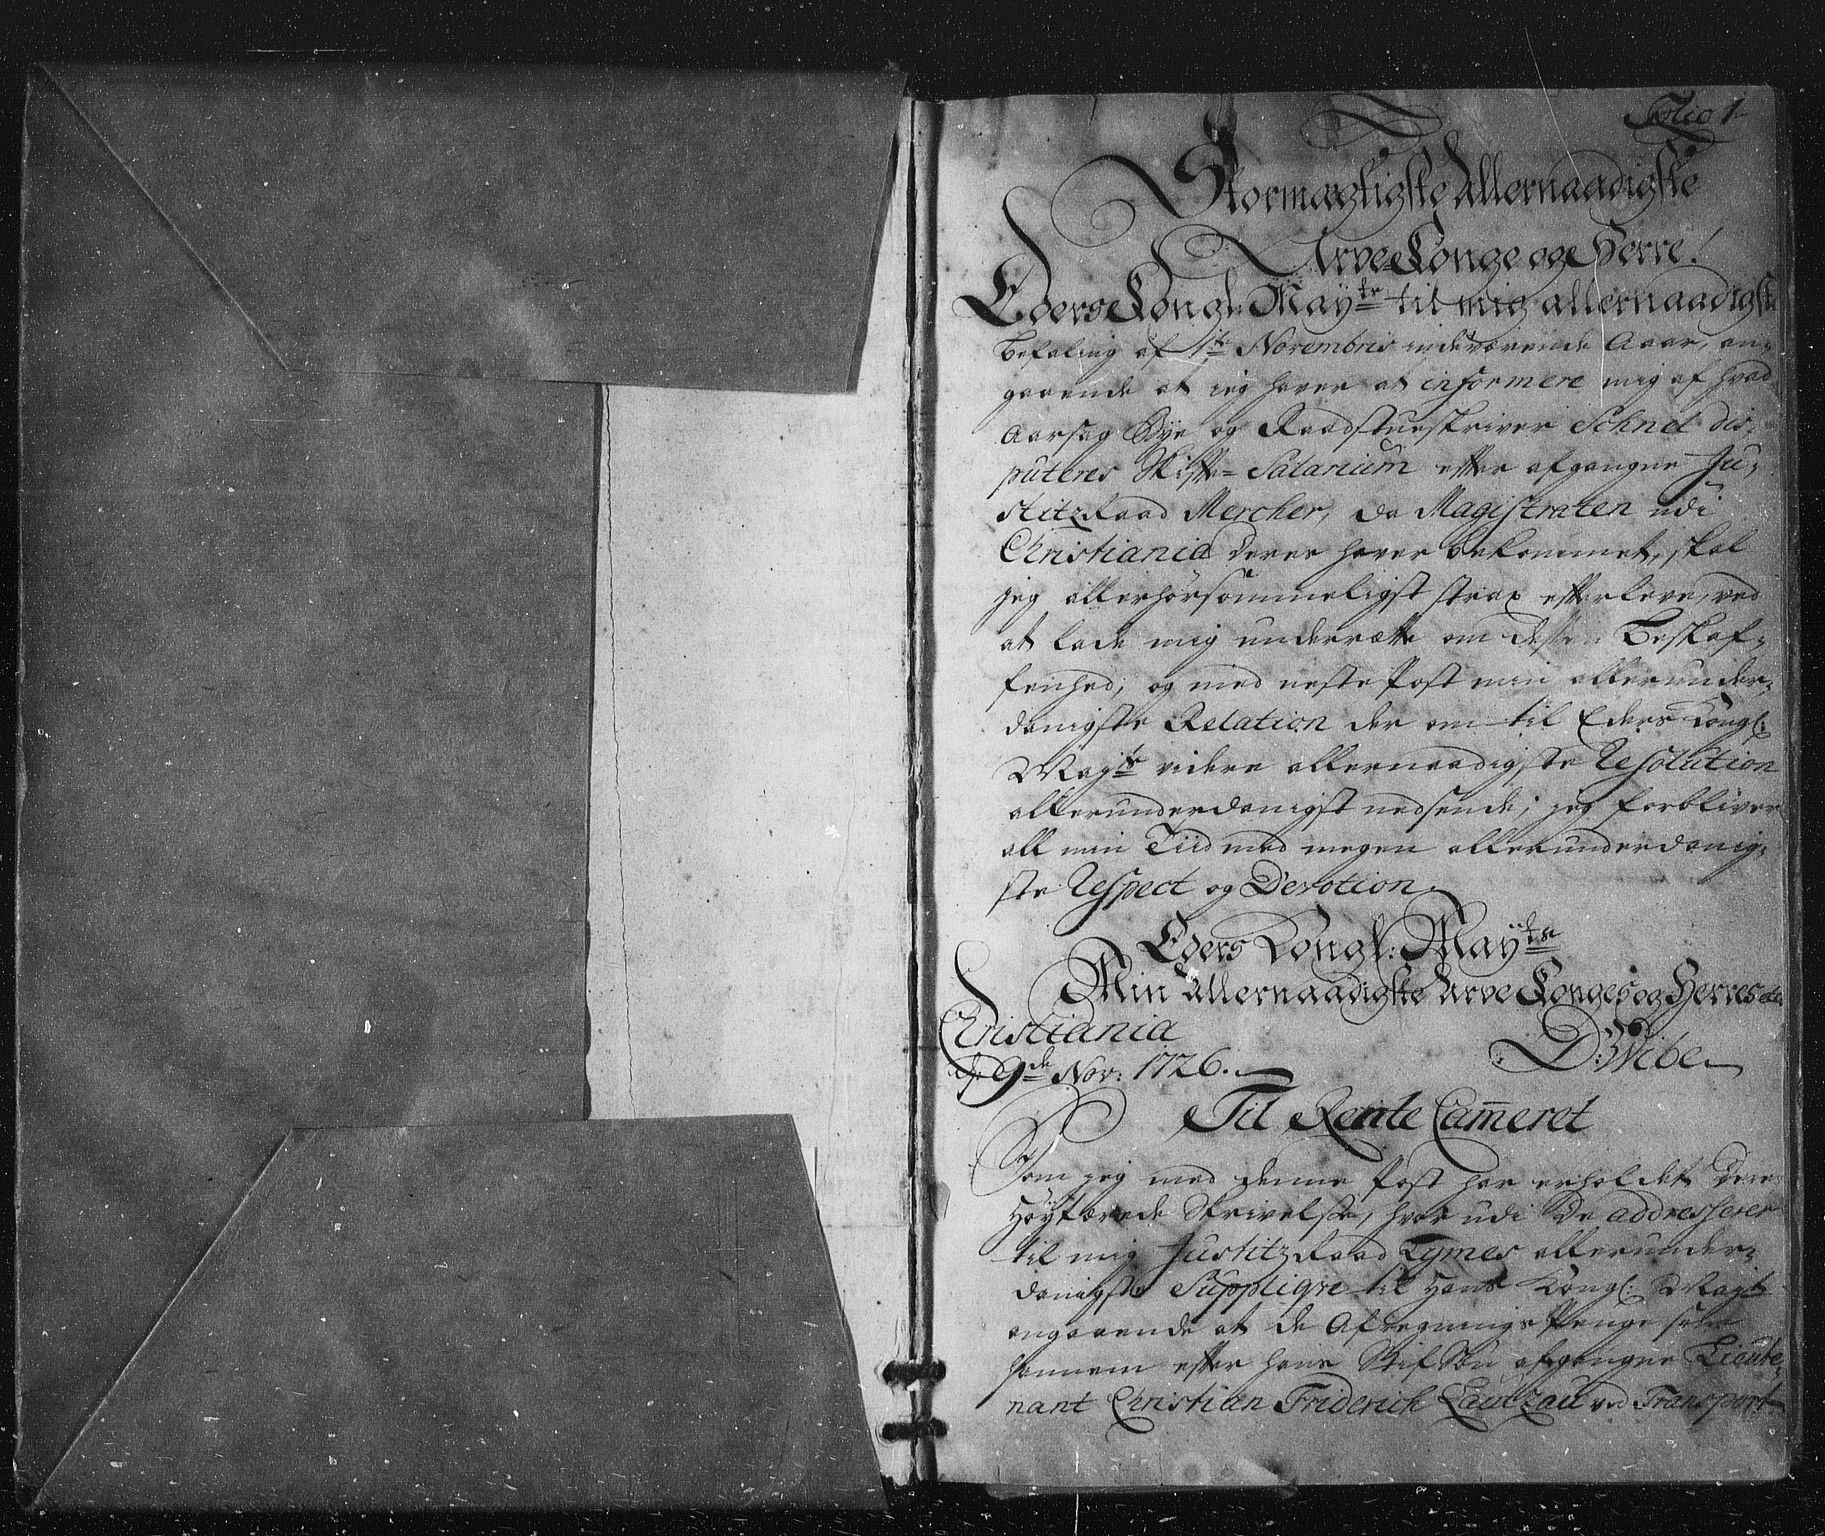 Folio 1
Stormægtigste Allernaadigste
Arve Konge og Herre!
Eders Kongl: Mayts til mig allernaadigste
Befaling af 1ste Novembris indeværende Aaar, an-
gaaende at jeg haver at informere mig af hvad
Aarsag Bye og Raadstueskriver Schnel dis-
puteres Skifte-Salarium efter afgangne Ju-
stitzRaad Mercher, da Magistraten udi
Christiania deres haver bekommet, skal
jeg allerhörsommeligst strax efterleve, ved
at lade mig underrætte om dessen Beskaf-
fenhed, og med neste Post min allerunder-
danigste Relation der om til Eders Kongl:
Mayts videre allernaadigste Resolution
allerunderdanigst nedsende; jeg forbliver
all min Tiid med megen allerunderdanig-
ste Respect og Devotion
Eders Kongl: Mayts
Min Allernaadigste Arve Konges og Herres etc.
Christiania
d. 9de Nov: 1726.
D: Wibe
Til Rente Cam̄eret
Som jeg med denne Post har erholdet Deres
Höytærede Skrivelse, hvor udi De addresserer
til mig JustitzRaad Tymes allerunder-
danigste Supplique til Hans Kongl: Mayts
angaaende at de Afregnings Penge som
hannem efter hans StifSön afgangne Lieute-
nant Christian Friderich Lautzau ved Transport